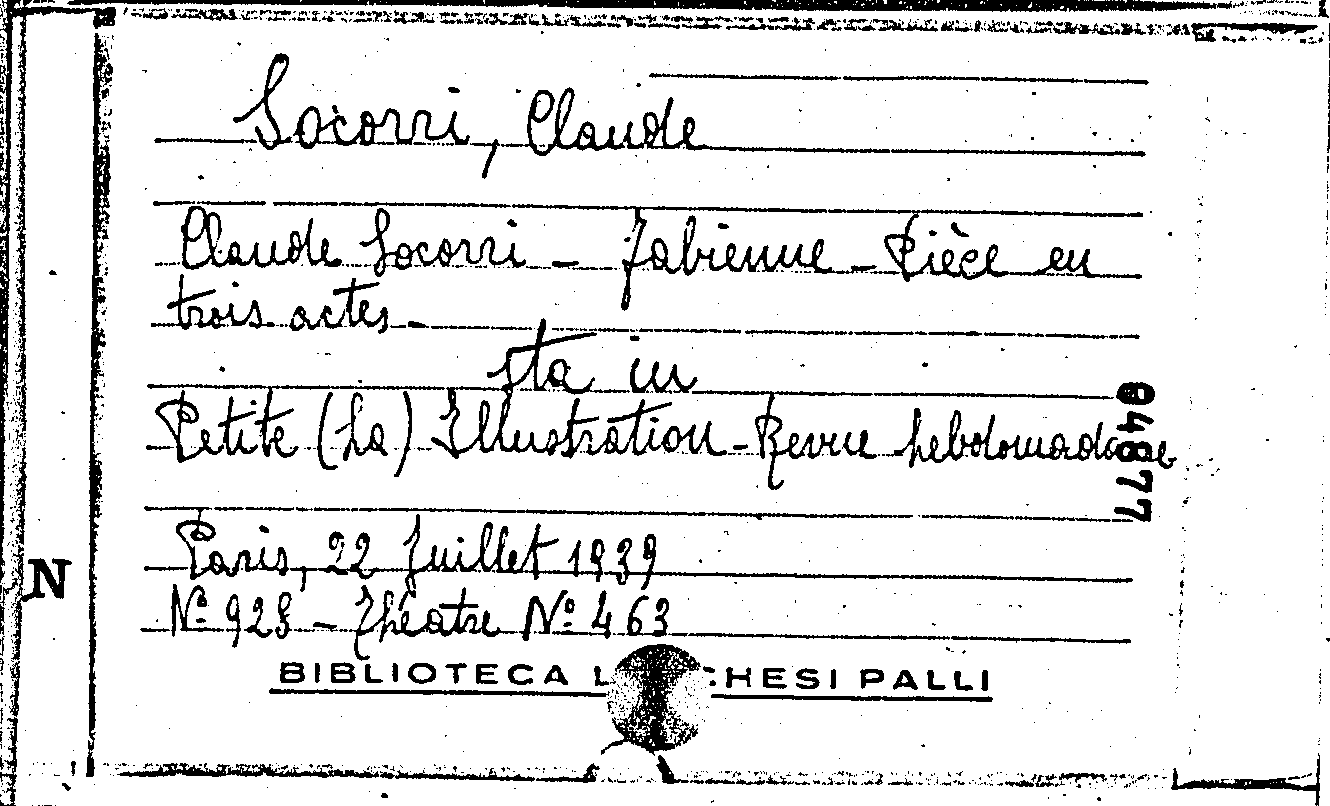 Socorri, Claude
Claude Socorri - Fabienne - Pièce en
trois actes -
sta in
Petite (La) Illustration - Revue hebdomadaire
04877
Paris, 22 Juillet 1939
N
Nº 928 - Théatre Nº 463
BIBLIOTECA L CHESI PALLI